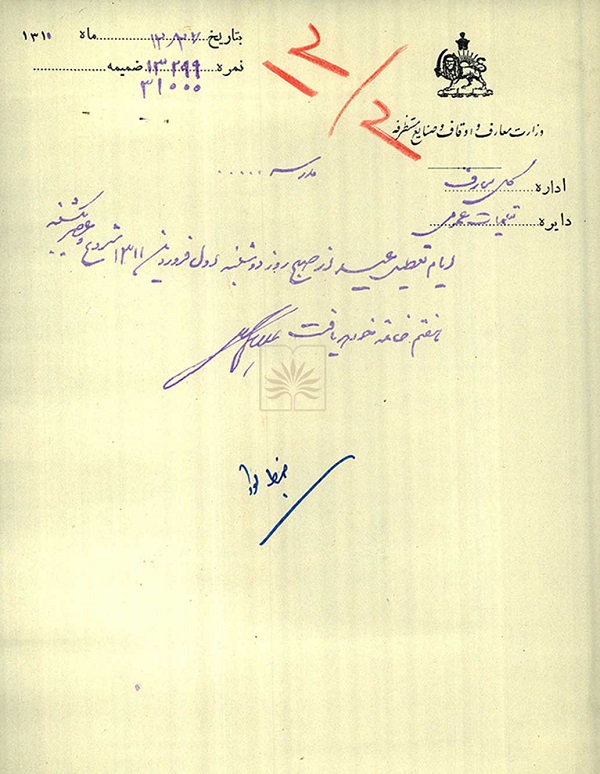 وزارت معارف و اوقاف و صنایع مستظرفه
بتاریخ ۱۲/۲۷ ماه ۱۳۱۰
نمره ۱۳۲۹۹ ضمیمه
۳۱۰۰۰
۱۲/۲
اداره کل معارف
دایره تعلیمات عمومی
مدرسه .....
ایام تعطیل عید از صبح روز دوشنبه اول فروردین ۱۳۱۱ شروع و عصر یکشنبه
هفتم خاتمه خواهد یافت
ضبط شود